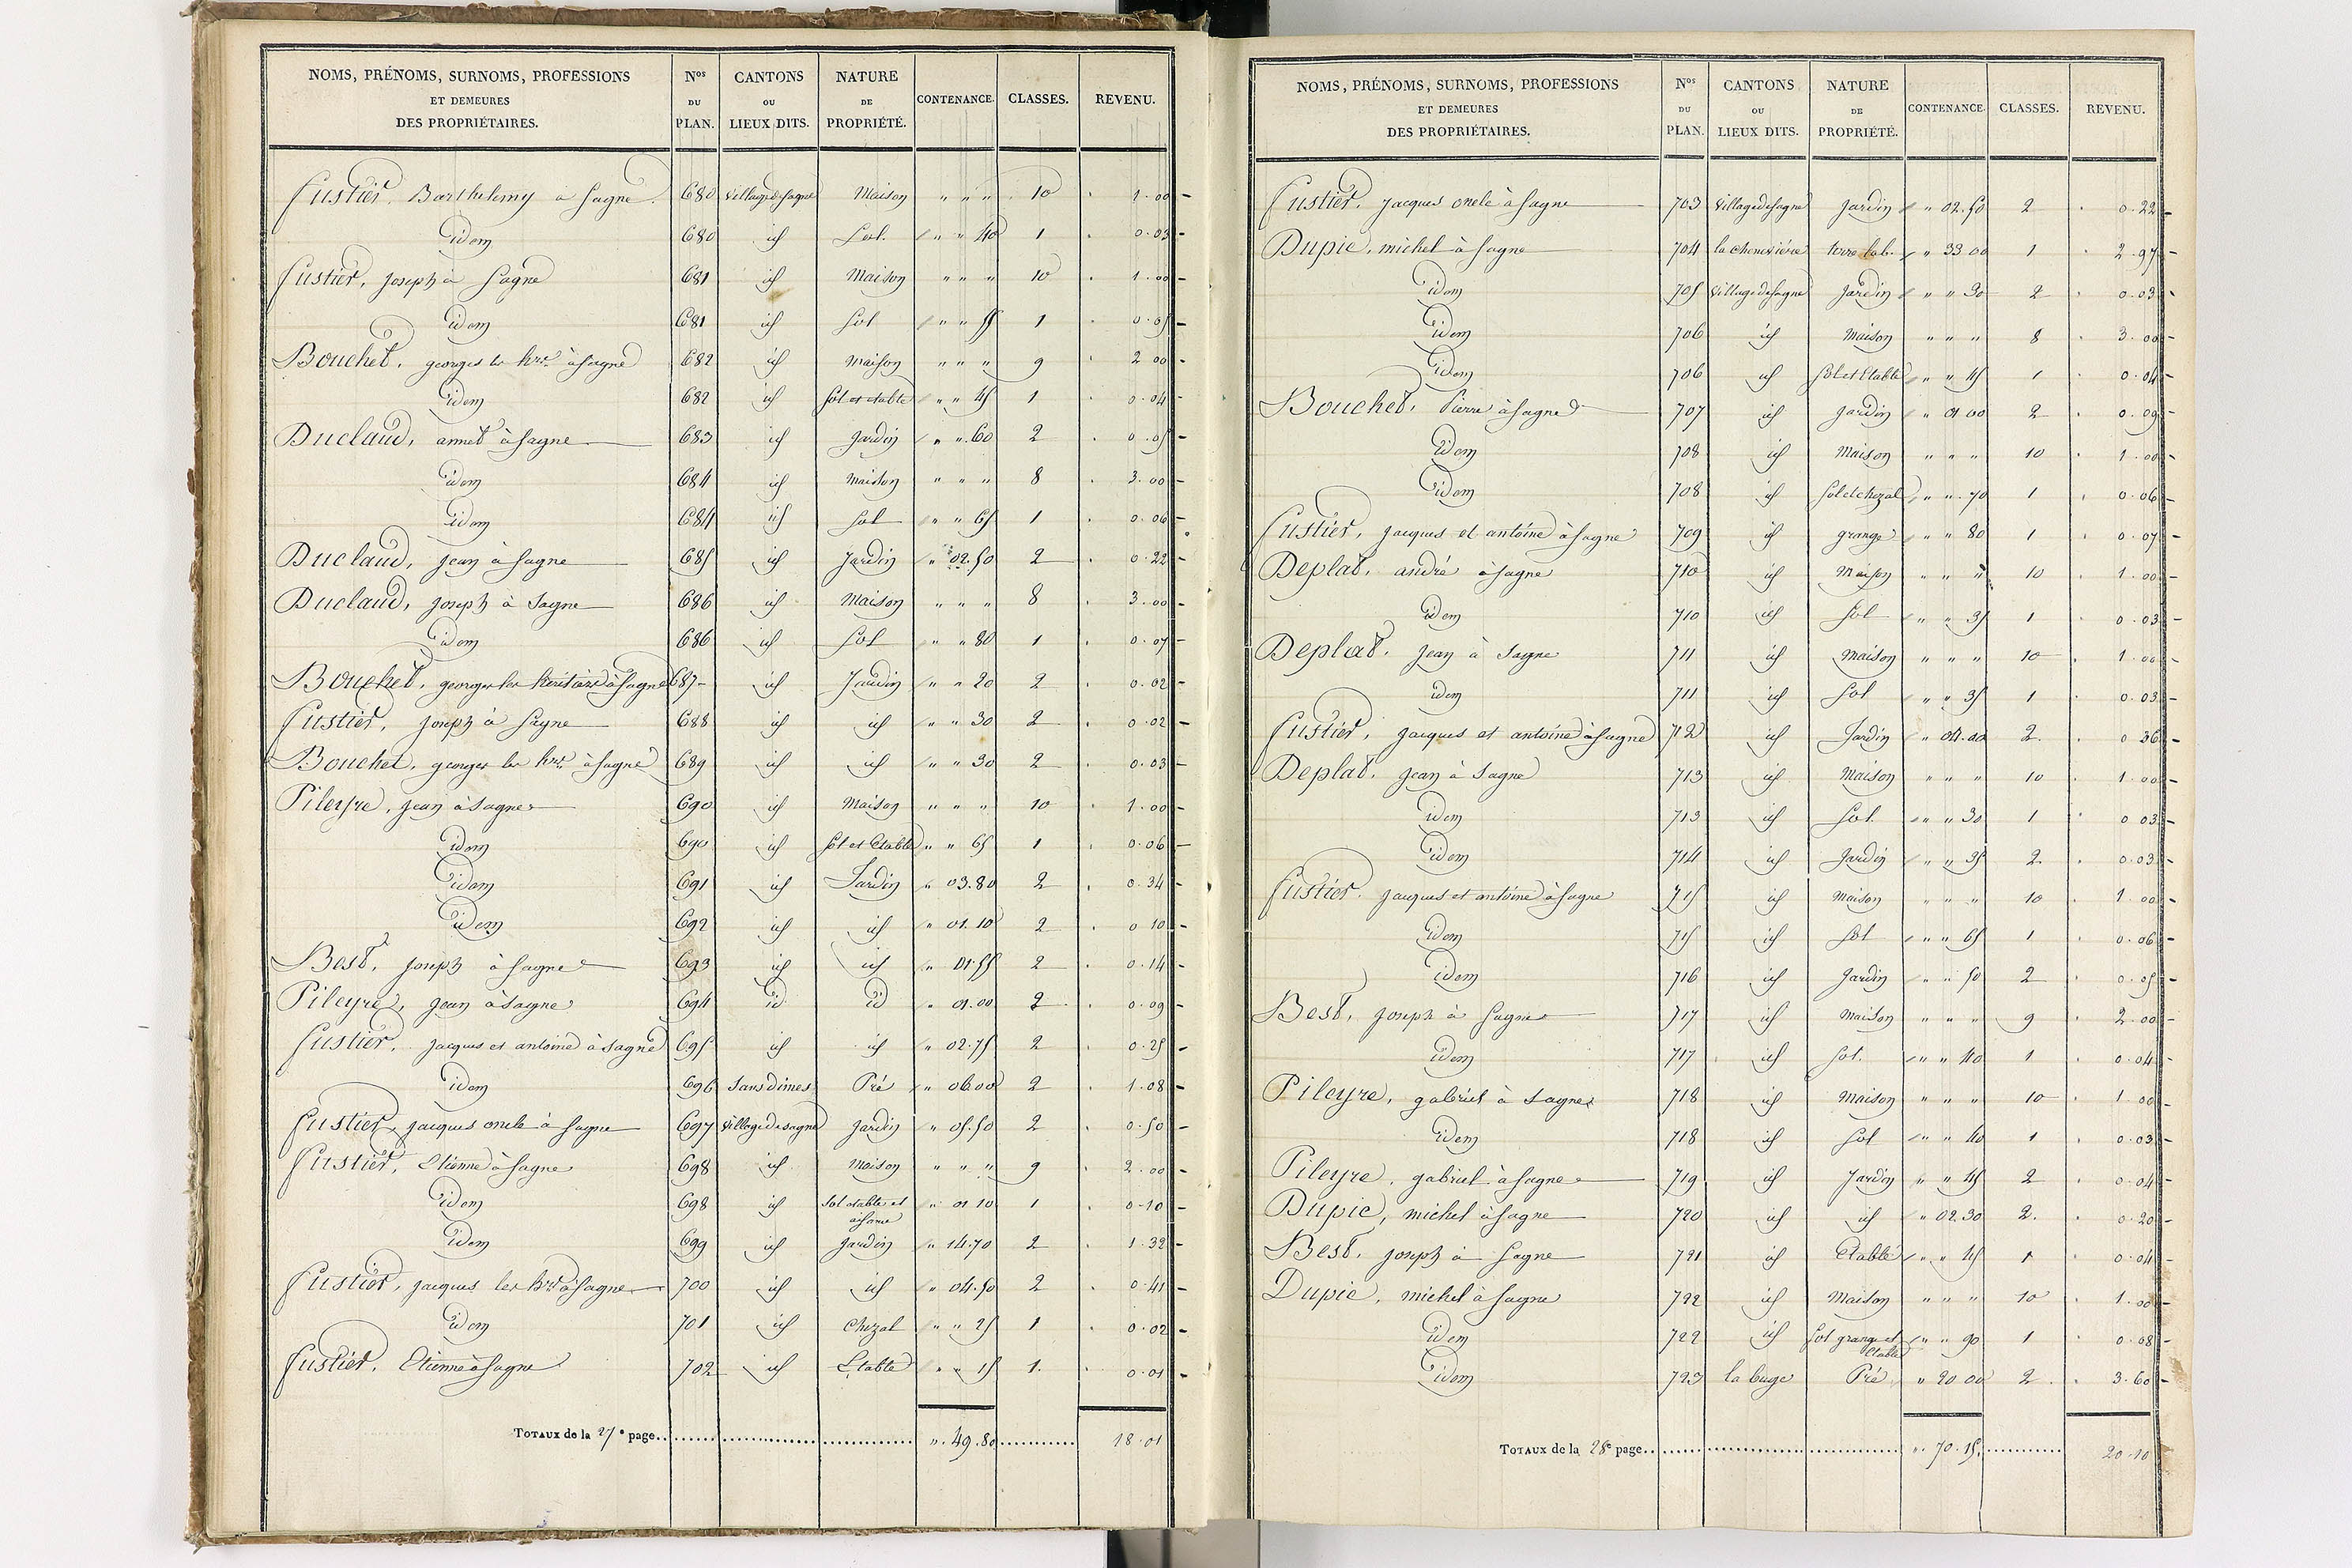 NOMS, PRÉNOMS, SURNOMS, PROFESSIONS ET DEMEURES DES PROPRIÉTAIRES. Nos DU PLAN. CANTONS OU LIEUX DITS. NATURE DE PROPRIÉTÉ. CONTENANCE. CLASSES. REVENU.
Fustier, Barthelemy à Sagne 680 Village de Sagne Maison " " " 10 1.00
idem 680 id Sol " " 40 1 0.03
Fustier, joseph à Sagne 681 id Maison " " " 10 1.00
idem 681 id Sol " " 55 1 0.05
Bouchet, georges les hers à Sagne 682 id maison " " " 9 2 00
idem 682 id Sol et etable " " 45 1 0.04
Duclaud, annet à Sagne 683 id Jardin " " 60 2 0.05
idem 684 id maison " " " 8 3.00
idem 684 id Sol " " 65 1 0.06
Duclaud, jean à Sagne 685 id Jardin " 02.50 2 0.22
Duclaud, joseph à Sagne 686 id Maison " " " 8 3.00
idem 686 id Sol " " 80 1 0.07
Bouchet, georges les heritiers à Sagne 687 id Jardin " " 20 2 0.02
Fustier, joseph à Sagne 688 id id " " 30 2 0.02
Bouchet, georges les hers à Sagne 689 id id " " 30 2 0.03
Pileyre, jean à Sagne 690 id Maison " " " 10 1.00
idem 690 id Sol et Etable " " 65 1 0.06
idem 691 id Jardin " 03.80 2 0.34
idem 692 id id " 01.10 2 0 10
Best, joseph à Sagne 693 id id " 01.55 2 0.14
Pileyre, jean à Sagne 694 id id " 01.00 2 0.09
Fustier, jacques et antoine à Sagne 695 id id " 02.75 2 0.25
idem 696 Sans dimes Pré " 06.00 2 1.08
Fustier, jacques oncle à Sagne 697 Village de Sagne Jardin " 05.50 2 0.50
Fustier, Etienne à Sagne 698 id Maison " " " 9 2.00
idem 698 id Sol etable et aisance " 01 10 1 0.10
idem 699 id Jardin " 14.70 2 1.32
Fustier, jacques les hers à Sagne 700 id id " 04.50 2 0.41
idem 701 id Chezal " " 25 1 0.02
Fustier, Etienne à Sagne 702 id Etable " " 15 1. 0.01
TOTAUX de la 27e page. ". 49.80 18.01
NOMS, PRÉNOMS, SURNOMS, PROFESSIONS ET DEMEURES DES PROPRIÉTAIRES. Nos DU PLAN. CANTONS OU LIEUX DITS. NATURE DE PROPRIÉTÉ. CONTENANCE. CLASSES. REVENU.
Fustier, jacques oncle à Sagne 703 Village de Sagne Jardin " 02.50 2 0.22
Dupic, michel à Sagne 704 la cheneviére terre lab. " 33 00 1 2.97
idem 705 Village de Sagne Jardin " " 30 2 0.03
idem 706 id Maison " " " 8 3.00
idem 706 id Sol et Etable " " 45 1 0.04
Bouchet, Pierre à Sagne 707 id Jardin " 01 00 2 0.09
idem 708 id Maison " " " 10 1.00
idem 708 id Sol et chezal " " 70 1 0.06
Fustier, jacques et antoine à Sagne 709 id grange " " 80 1 0.07
Deplat, andré à Sagne 710 id Maison " " " 10 1.00
idem 710 id Sol " " 35 1 0.03
Deplat, jean à Sagne 711 id Maison " " " 10 1.00
idem 711 id Sol " " 35 1 0.03
Fustier, jacques et antoine à Sagne 712 id Jardin " 04.00 2. 0 36
Deplat, jean à Sagne 713 id Maison " " " 10 1.00
idem 713 id Sol " " 30 1 0 03
idem 714 id Jardin " " 35 2. 0.03
Fustier, jacques et antoine à Sagne 715 id maison " " " 10 1 00
idem 715 id Sol " " 65 1 0.06
idem 716 id Jardin " " 50 2 0.05
Best, joseph à Sagne 717 id Maison " " " 9 2.00
idem 717 id Sol. " " 40 1 0.04
Pileyre, gabriel à Sagne 718 id Maison " " " 10 1.00
idem 718 id Sol " " 40 1 0.03
Pileyre, gabriel à Sagne 719 id Jardin " " 45 2 0.04
Dupic, michel à Sagne 720 id id " 02.30 2. 0.20
Best, joseph à Sagne 721 id Etable " " 45 1 0.04
Dupic, michel à Sagne 722 id Maison " " " 10 1.00
idem 722 id Sol grange et Etable " " 90 1 0.08
idem 723 la buge Pré " 20 00 2 3.60
TOTAUX de la 28e page. ". 70.15. 20.10